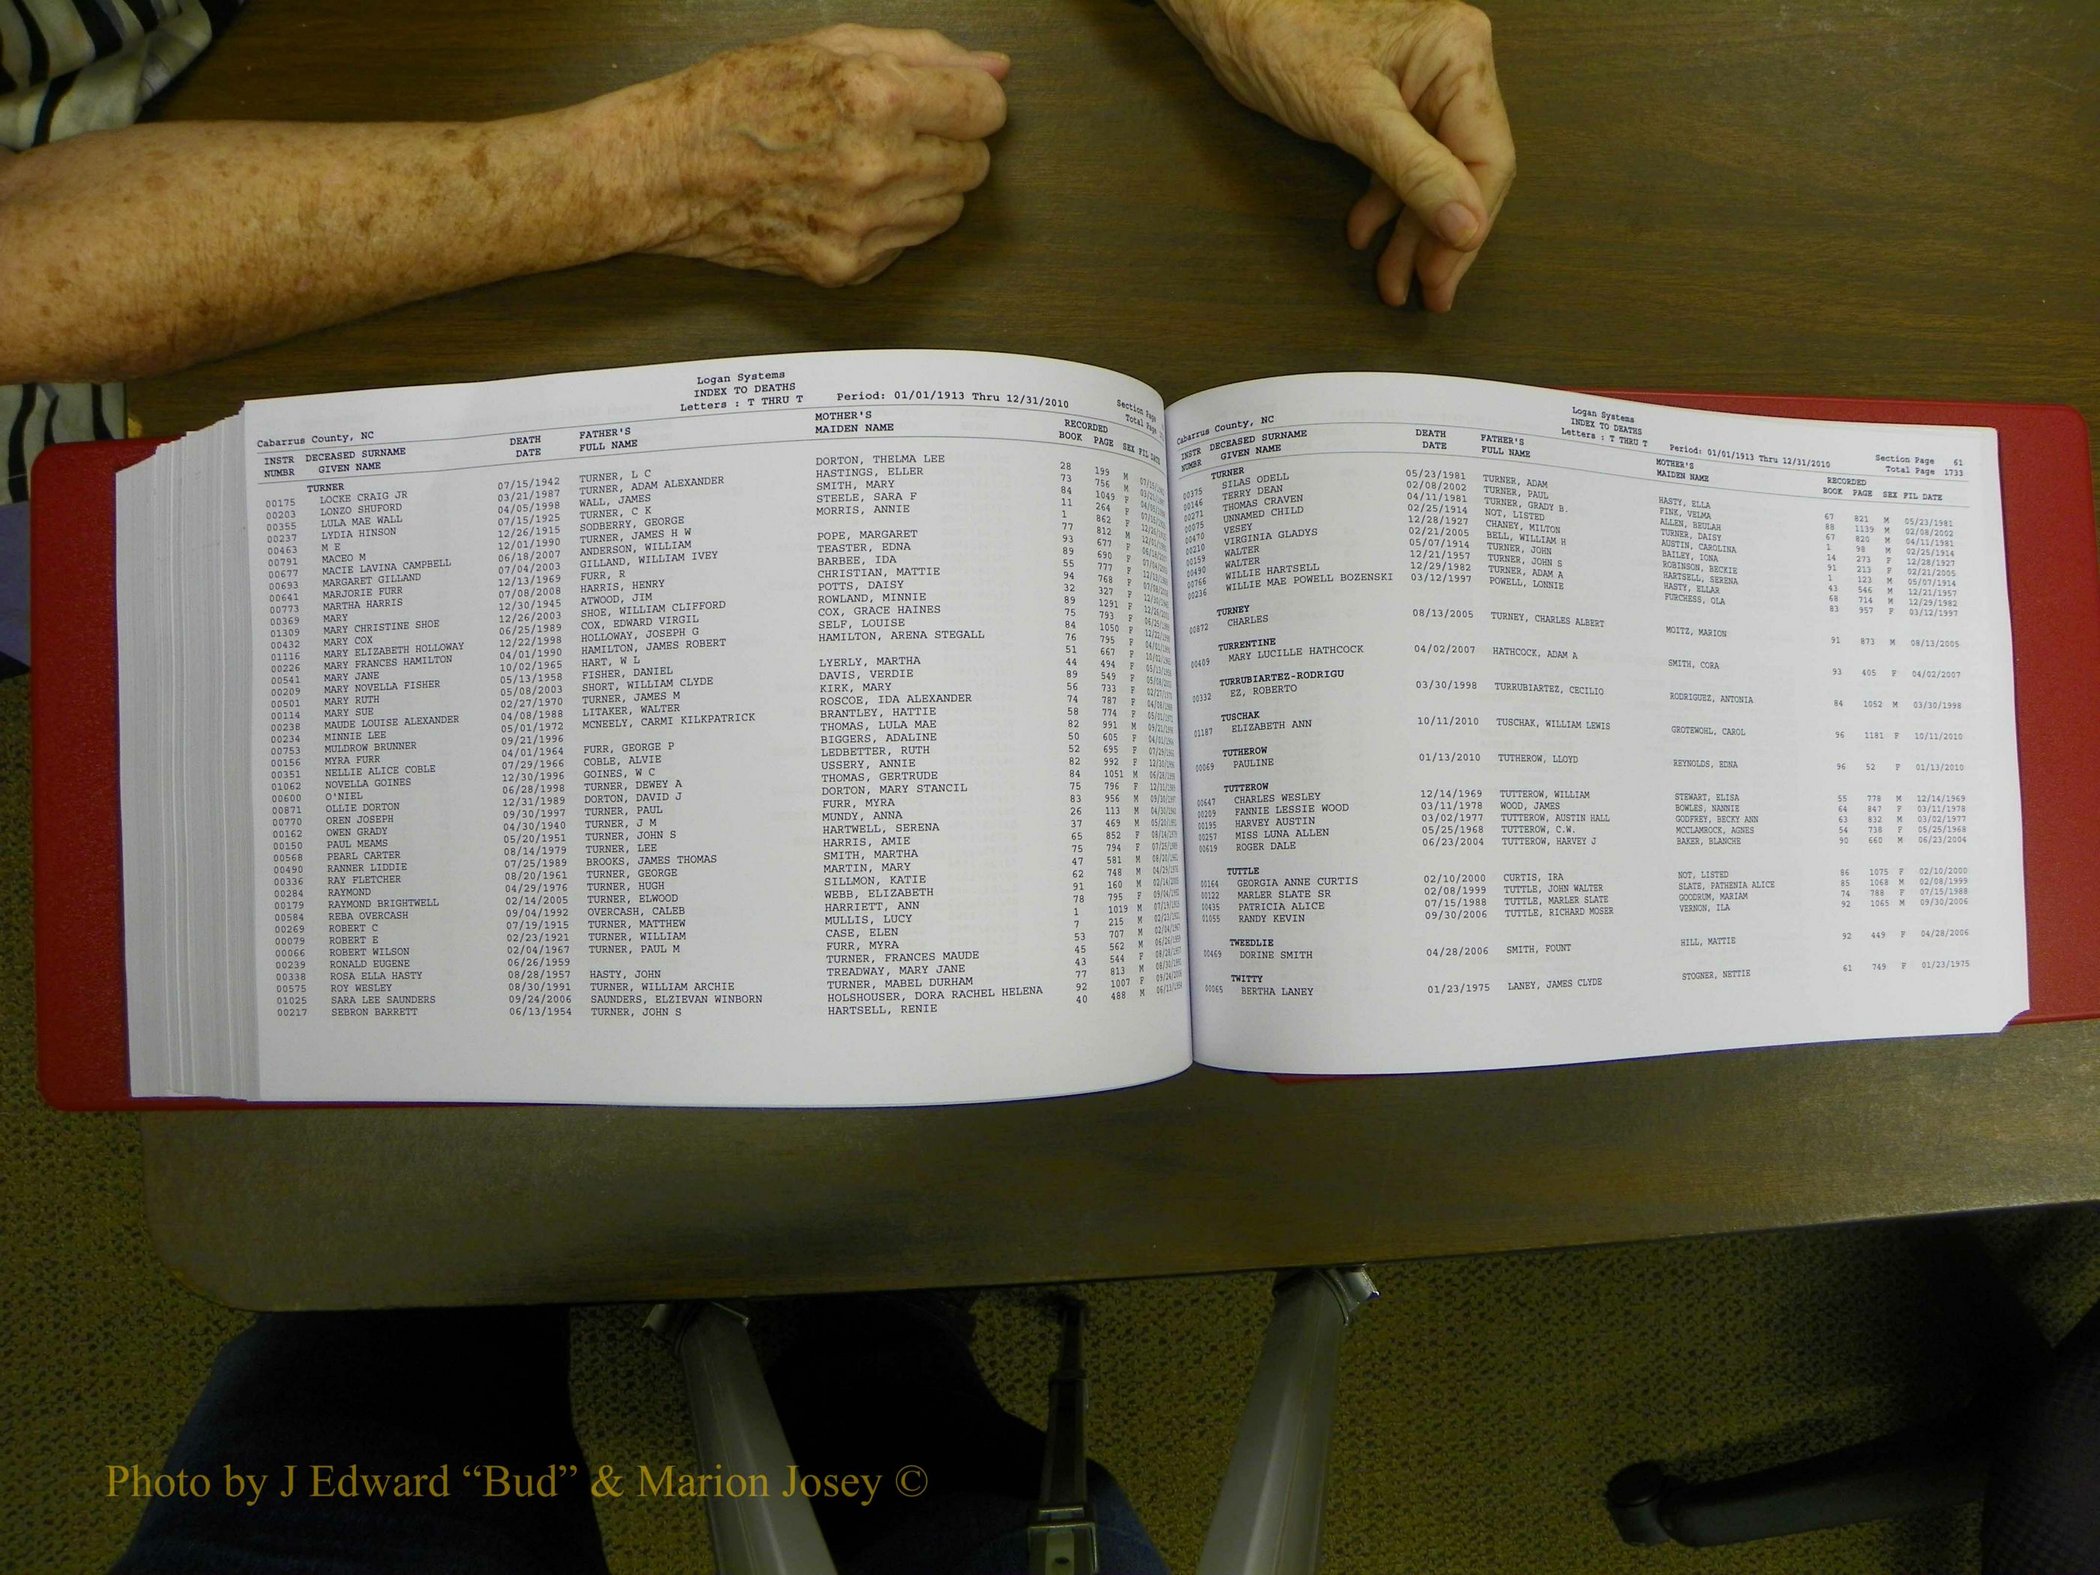 Logan Systems
INDEX TO DEATHS
Letters : T THRU T Period: 01/01/1913 Thru 12/31/2010
Section Page
Total Page
Cabarrus County, NC
INSTR DECEASED SURNAME DEATH FATHER'S MOTHER'S RECORDED
NUMBR GIVEN NAME DATE FULL NAME MAIDEN NAME BOOK PAGE SEX FIL DATE
TURNER
00175 LOCKE CRAIG JR 07/15/1942 TURNER, L C DORTON, THELMA LEE 28 199 M
00203 LONZO SHUFORD 03/21/1987 TURNER, ADAM ALEXANDER HASTINGS, ELLER 73 756 M
00355 LULA MAE WALL 04/05/1998 WALL, JAMES SMITH, MARY 84 1049 F
00237 LYDIA HINSON 07/15/1925 TURNER, C K STEELE, SARA F 11 264 F
00463 M E 12/26/1915 SODBERRY, GEORGE MORRIS, ANNIE 1 862 F
00791 MACEO M 12/01/1990 TURNER, JAMES H W 77 812 M
00677 MACIE LAVINA CAMPBELL 06/18/2007 ANDERSON, WILLIAM POPE, MARGARET 93 677 F
00693 MARGARET GILLAND 07/04/2003 GILLAND, WILLIAM IVEY TEASTER, EDNA 89 690 F
00641 MARJORIE FURR 12/13/1969 FURR, R BARBEE, IDA 55 777 F
00773 MARTHA HARRIS 07/08/2008 HARRIS, HENRY CHRISTIAN, MATTIE 94 768 F
00369 MARY 12/30/1945 ATWOOD, JIM POTTS, DAISY 32 327 F
01309 MARY CHRISTINE SHOE 12/26/2003 SHOE, WILLIAM CLIFFORD ROWLAND, MINNIE 89 1291 F
00432 MARY COX 06/25/1989 COX, EDWARD VIRGIL COX, GRACE HAINES 75 793 F
01116 MARY ELIZABETH HOLLOWAY 12/22/1998 HOLLOWAY, JOSEPH G SELF, LOUISE 84 1050 F
00226 MARY FRANCES HAMILTON 04/01/1990 HAMILTON, JAMES ROBERT HAMILTON, ARENA STEGALL 76 795 F
00541 MARY JANE 10/02/1965 HART, W L 51 667 F
00209 MARY NOVELLA FISHER 05/13/1958 FISHER, DANIEL LYERLY, MARTHA 44 494 F
00501 MARY RUTH 05/08/2003 SHORT, WILLIAM CLYDE DAVIS, VERDIE 89 549 F
00114 MARY SUE 02/27/1970 TURNER, JAMES M KIRK, MARY 56 733 F
00238 MAUDE LOUISE ALEXANDER 04/08/1988 LITAKER, WALTER ROSCOE, IDA ALEXANDER 74 787 F
00234 MINNIE LEE 05/01/1972 MCNEELY, CARMI KILKPATRICK BRANTLEY, HATTIE 58 774 F
00753 MULDROW BRUNNER 09/21/1996 THOMAS, LULA MAE 82 991 M
00156 MYRA FURR 04/01/1964 FURR, GEORGE P BIGGERS, ADALINE 50 605 F
00351 NELLIE ALICE COBLE 07/29/1966 COBLE, ALVIE LEDBETTER, RUTH 52 695 F
01062 NOVELLA GOINES 12/30/1996 GOINES, W C USSERY, ANNIE 82 992 F
00600 O'NIEL 06/28/1998 TURNER, DEWEY A THOMAS, GERTRUDE 84 1051 M
00871 OLLIE DORTON 12/31/1989 DORTON, DAVID J DORTON, MARY STANCIL 75 796 F
00770 OREN JOSEPH 09/30/1997 TURNER, PAUL FURR, MYRA 83 956 M
00162 OWEN GRADY 04/30/1940 TURNER, J M MUNDY, ANNA 26 113 M
00150 PAUL MEAMS 05/20/1951 TURNER, JOHN S HARTWELL, SERENA 37 469 M
00568 PEARL CARTER 08/14/1979 TURNER, LEE HARRIS, AMIE 65 852 F
00490 RANNER LIDDIE 07/25/1989 BROOKS, JAMES THOMAS SMITH, MARTHA 75 794 F
00336 RAY FLETCHER 08/20/1961 TURNER, GEORGE MARTIN, MARY 47 581 M
00284 RAYMOND 04/29/1976 TURNER, HUGH SILLMON, KATIE 62 748 M
00179 RAYMOND BRIGHTWELL 02/14/2005 TURNER, ELWOOD WEBB, ELIZABETH 91 160 M
00584 REBA OVERCASH 09/04/1992 OVERCASH, CALEB HARRIETT, ANN 78 795 F
00269 ROBERT C 07/19/1915 TURNER, MATTHEW MULLIS, LUCY 1 1019 M
00079 ROBERT E 02/23/1921 TURNER, WILLIAM CASE, ELEN 7 215 M
00066 ROBERT WILSON 02/04/1967 TURNER, PAUL M FURR, MYRA 53 707 M
00239 RONALD EUGENE 06/26/1959 TURNER, FRANCES MAUDE 45 562 M
00338 ROSA ELLA HASTY 08/28/1957 HASTY, JOHN TREADWAY, MARY JANE 43 544 F
00575 ROY WESLEY 08/30/1991 TURNER, WILLIAM ARCHIE TURNER, MABEL DURHAM 77 813 M
01025 SARA LEE SAUNDERS 09/24/2006 SAUNDERS, ELZIEVAN WINBORN HOLSHOUSER, DORA RACHEL HELENA 92 1007 F
00217 SEBRON BARRETT 06/13/1954 TURNER, JOHN S HARTSELL, RENIE 40 488 M
Logan Systems
INDEX TO DEATHS
Letters : T THRU T Period: 01/01/1913 Thru 12/31/2010
Section Page 61
Total Page 1733
Cabarrus County, NC
INSTR DECEASED SURNAME DEATH FATHER'S MOTHER'S RECORDED
NUMBR GIVEN NAME DATE FULL NAME MAIDEN NAME BOOK PAGE SEX FIL DATE
TURNER
00375 SILAS ODELL 05/23/1981 TURNER, ADAM HASTY, ELLA 67 821 M 05/23/1981
00146 TERRY DEAN 02/08/2002 TURNER, PAUL FINK, VELMA 88 1139 M 02/08/2002
00271 THOMAS CRAVEN 04/11/1981 TURNER, GRADY B. ALLEN, BEULAH 67 820 M 04/11/1981
00075 UNNAMED CHILD 02/25/1914 NOT, LISTED TURNER, DAISY 1 98 M 02/25/1914
00470 VESEY 12/28/1927 CHANEY, MILTON AUSTIN, CAROLINA 14 273 F 12/28/1927
00210 VIRGINIA GLADYS 02/21/2005 BELL, WILLIAM H BAILEY, IONA 91 213 F 02/21/2005
00159 WALTER 05/07/1914 TURNER, JOHN ROBINSON, BECKIE 1 123 M 05/07/1914
00490 WALTER 12/21/1957 TURNER, JOHN S HARTSELL, SERENA 43 546 M 12/21/1957
00766 WILLIE HARTSELL 12/29/1982 TURNER, ADAM A HASTY, ELLAR 68 714 M 12/29/1982
00236 WILLIE MAE POWELL BOZENSKI 03/12/1997 POWELL, LONNIE FURCHESS, OLA 83 957 F 03/12/1997
TURNEY
00872 CHARLES 08/13/2005 TURNEY, CHARLES ALBERT MOITZ, MARION 91 873 M 08/13/2005
TURRENTINE
00409 MARY LUCILLE HATHCOCK 04/02/2007 HATHCOCK, ADAM A SMITH, CORA 93 405 F 04/02/2007
TURRUBIARTEZ-RODRIGU
00332 EZ, ROBERTO 03/30/1998 TURRUBIARTEZ, CECILIO RODRIGUEZ, ANTONIA 84 1052 M 03/30/1998
TUSCHAK
01187 ELIZABETH ANN 10/11/2010 TUSCHAK, WILLIAM LEWIS GROTEWOHL, CAROL 96 1181 F 10/11/2010
TUTHEROW
00069 PAULINE 01/13/2010 TUTHEROW, LLOYD REYNOLDS, EDNA 96 52 F 01/13/2010
TUTTEROW
00647 CHARLES WESLEY 12/14/1969 TUTTEROW, WILLIAM STEWART, ELISA 55 778 M 12/14/1969
00209 FANNIE LESSIE WOOD 03/11/1978 WOOD, JAMES BOWLES, NANNIE 64 847 F 03/11/1978
00195 HARVEY AUSTIN 03/02/1977 TUTTEROW, AUSTIN HALL GODFREY, BECKY ANN 63 832 M 03/02/1977
00257 MISS LUNA ALLEN 05/25/1968 TUTTEROW, C.W. MCCLAMROCK, AGNES 54 738 F 05/25/1968
00619 ROGER DALE 06/23/2004 TUTTEROW, HARVEY J BAKER, BLANCHE 90 660 M 06/23/2004
TUTTLE
00164 GEORGIA ANNE CURTIS 02/10/2000 CURTIS, IRA NOT, LISTED 86 1075 F 02/10/2000
00122 MARLER SLATE SR 02/08/1999 TUTTLE, JOHN WALTER SLATE, PATHENIA ALICE 85 1068 M 02/08/1999
00435 PATRICIA ALICE 07/15/1988 TUTTLE, MARLER SLATE GOODRUM, MARIAM 74 788 F 07/15/1988
01055 RANDY KEVIN 09/30/2006 TUTTLE, RICHARD MOSER VERNON, ILA 92 1065 M 09/30/2006
TWEEDLIE
00469 DORINE SMITH 04/28/2006 SMITH, FOUNT HILL, MATTIE 92 449 F 04/28/2006
TWITTY
00065 BERTHA LANEY 01/23/1975 LANEY, JAMES CLYDE STOGNER, NETTIE 61 749 F 01/23/1975
Photo by J Edward “Bud” & Marion Josey ©